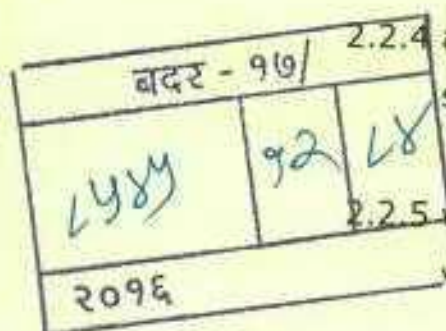 बदर - १७/
2.2.4
८५४५ १२ ८४
2.2.5
२०१६